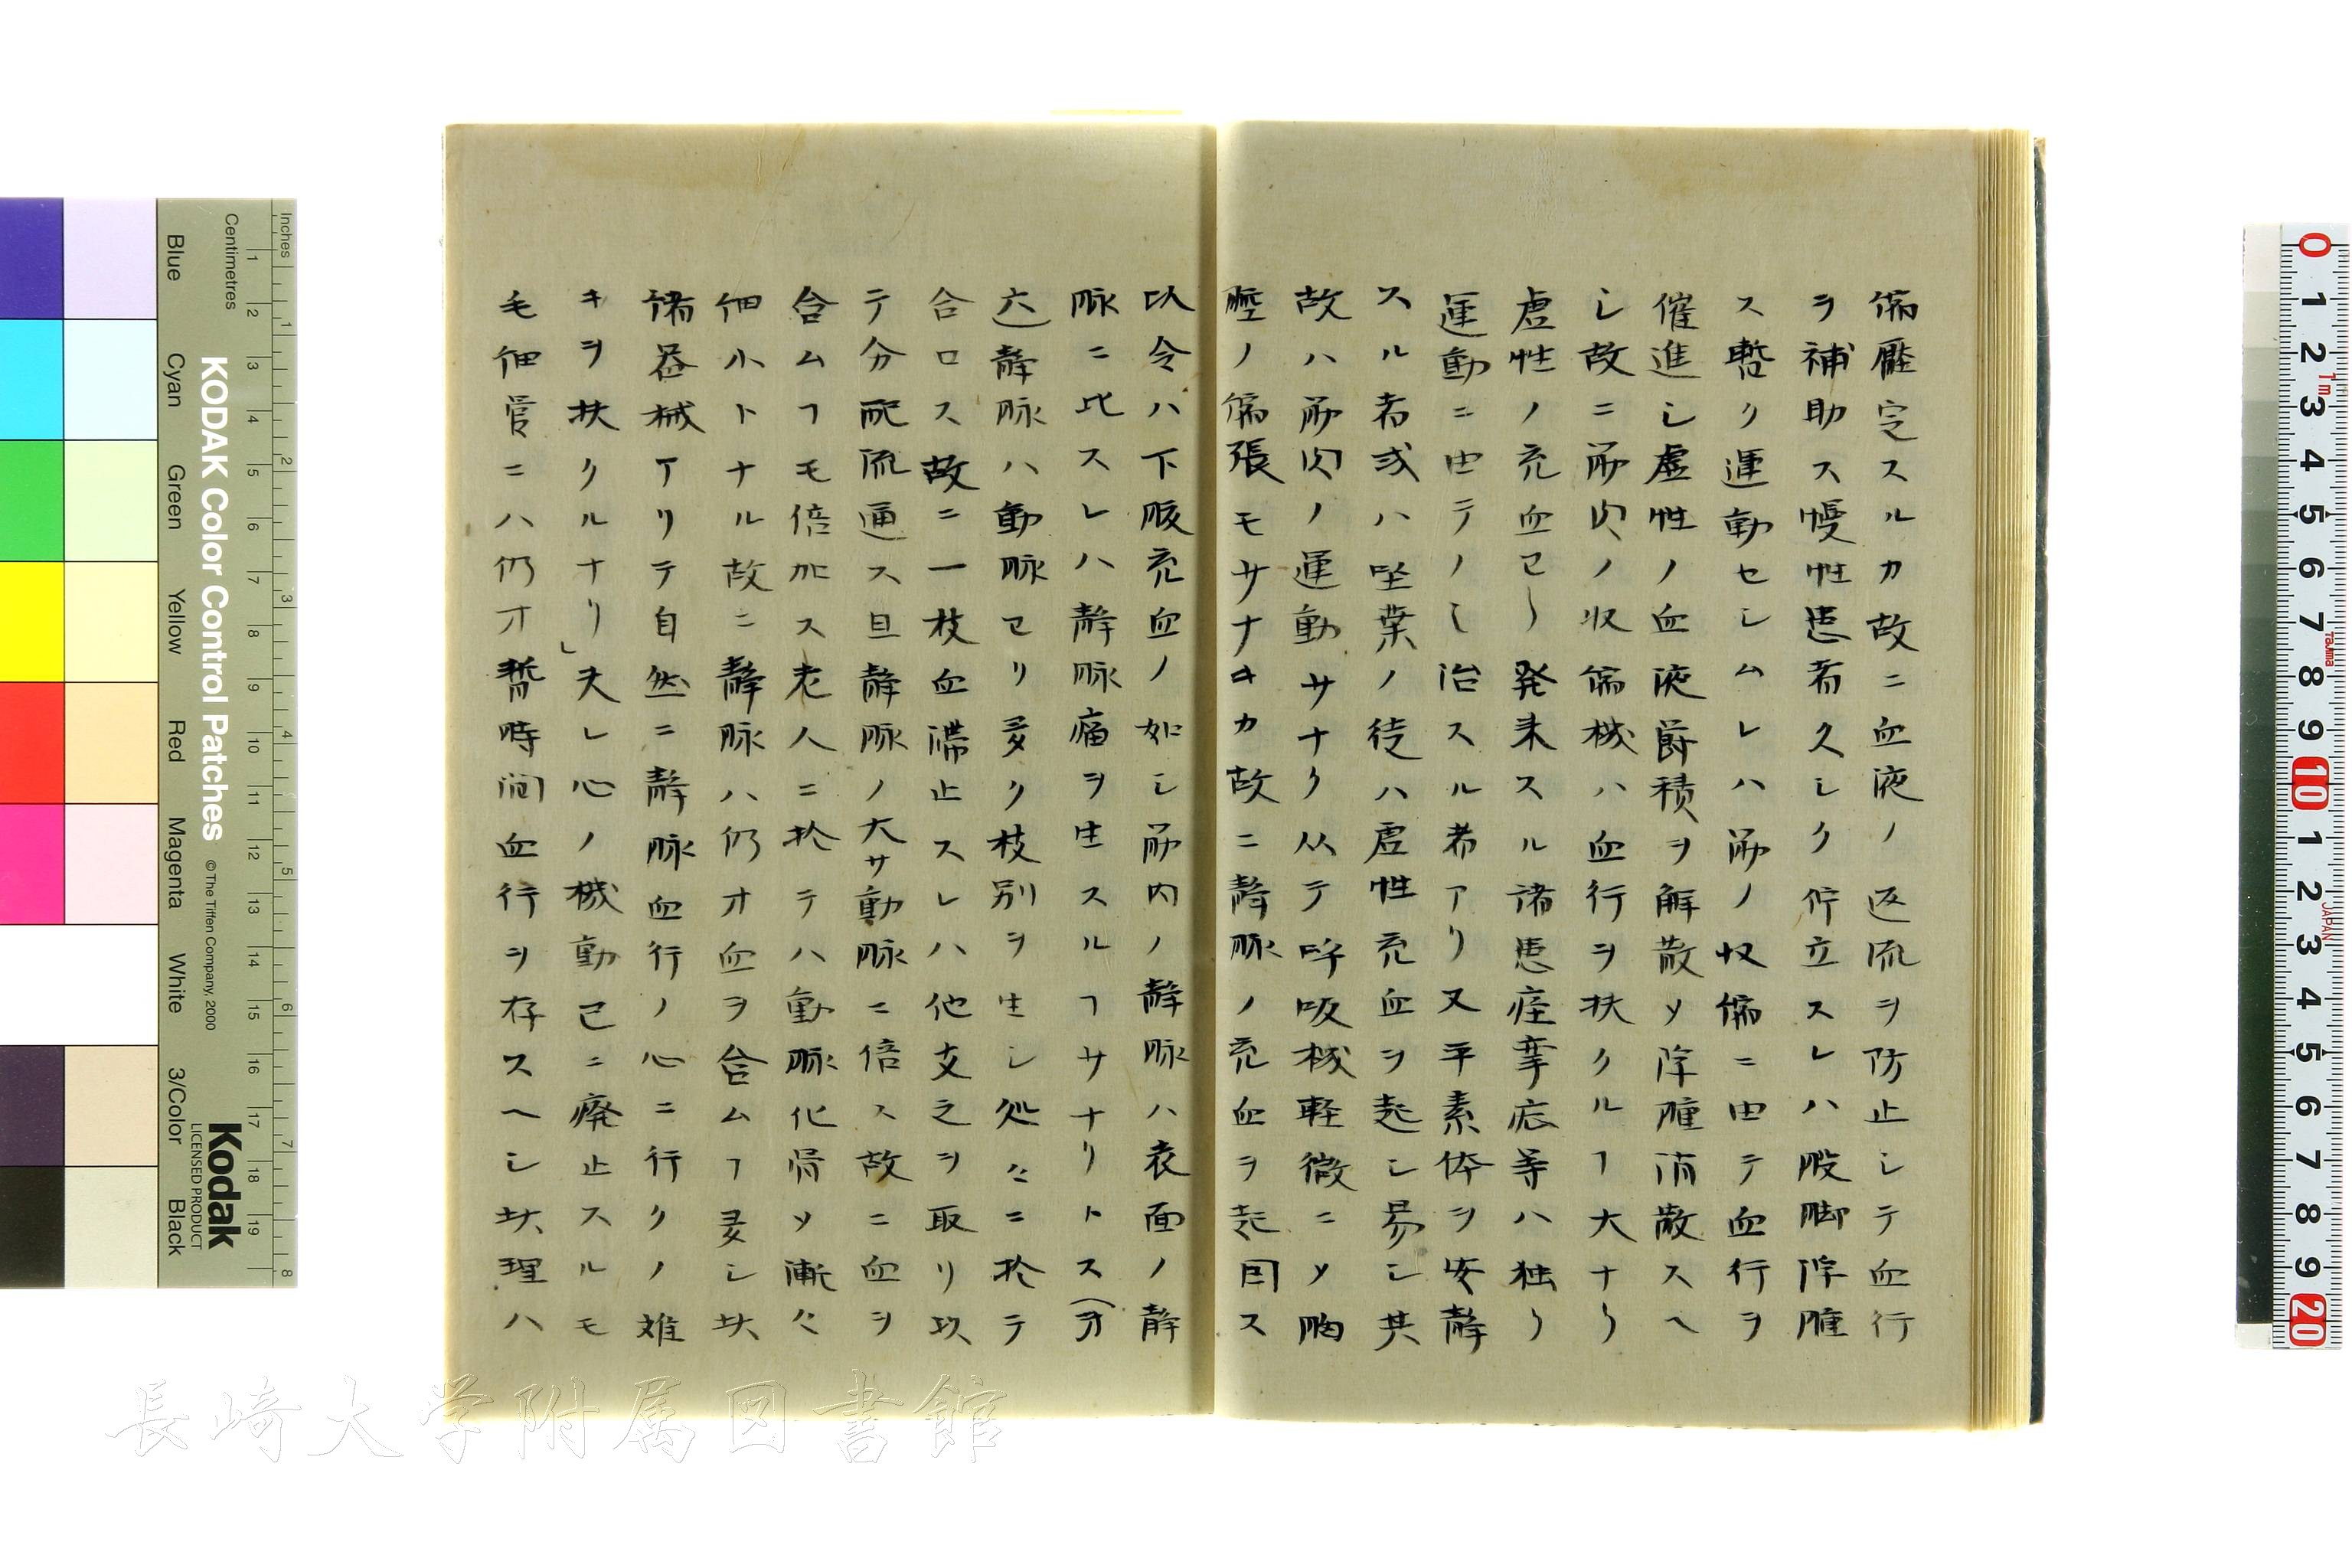 偏壓定スルカ故ニ血液ノ返流ヲ防止シテ血行
ヲ補助ス慢性患者久シク佇立スレハ股脚浮腫
ス暫ク運動セシムレハ筋ノ収偏ニ由テ血行ヲ
催進シ虚性ノ血液欝積ヲ解散メ浮腫消散スヘ
シ故ニ筋肉ノ収偏機ハ血行ヲ扶クルヿ大ナリ
虚性ノ充血ヨリ発来スル諸患痙攣疝等ハ独リ
運動ニ由テノミ治スル者アリ又平素体ヲ安静
スル者或ハ坐業ノ徒ハ虚性充血ヲ起シ易シ共
故ハ筋肉ノ運動サナク从テ呼吸機軽微ニメ胸
腔ノ偏張モサナキカ故ニ静脈ノ充血ヲ起因ス
以令ハ下腹充血ノ如シ筋内ノ静脈ハ衣面ノ静
脈ニ比スレハ静脈痛ヲ生スルヿサナリトス(第
六)静脈ハ動脈ヨリ多ク枝別ヲ生シ処々ニ於テ
合口ス故ニ一枝血滞止スレハ他支之ヲ取リ以
テ分配流通ス且静脈ノ大サ動脈ニ倍ス故ニ血ヲ
含ムヿモ倍加ス老人ニ於テハ動脈化骨メ漸々
細小トナル故ニ静脈ハ仍オ血ヲ含ムヿ多シ此
諸器械アリテ自然ニ静脈血行ノ心ニ行クノ难
キヲ扶クルナリ」夫レ心ノ機動已ニ廃止スルモ
毛細管ニハ仍オ暫時间血行ヲ存スヘシ此理ハ
Inches
Centimetres
KODAK Color Control Patches
© The Tiffen Company, 2000
Kodak
LICENSED PRODUCT
Blue
Cyan
Green
Yellow
Red
Magenta
White
3/Color
Black
長崎大学附属図書館